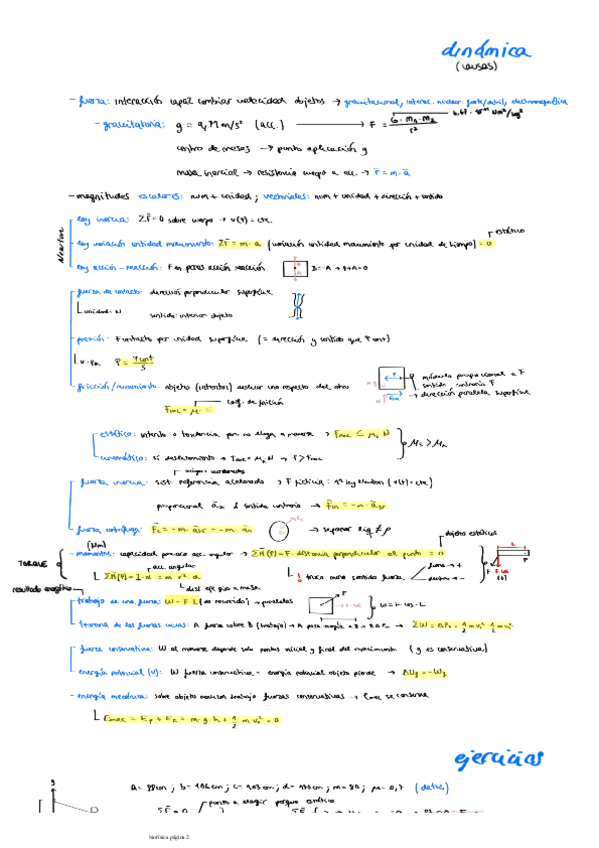 dinámica
(causas)
- fuerza: interacción capaz cambiar velocidad objetos → gravitacional, interac. nuclear fuerte/débil, electromagnética
- gravitatoria: g = 9,81 m/s² (acc.) → F = G · m₁ · m₂ / r²
centro de masas → punto aplicación g
masa inercial → resistencia cuerpo a acc. → F = m · a
- magnitudes escalares: num + unidad; vectoriales: num + unidad + dirección + sentido
Newton
ley inercia: ΣF = 0 sobre cuerpo → v(t) = cte.
estático
ley variación cantidad movimiento: ΣF = m · a (variación cantidad movimiento por unidad de tiempo) = 0
ley acción - reacción: F en pares acción reacción B = -A → B+A=0
- fuerza de contacto: dirección perpendicular superficie
unidad: N sentido: interior objeto
- presión: F contacto por unidad superficie (= dirección y sentido que F cont)
P = F cont / S
- fricción/rozamiento: objetos (intentan) deslizar uno respecto del otro
módulo proporcional a F
sentido contrario F
→ dirección paralela superficie
coef. de fricción
- estático: intento o tendencia pero no llega a moverse → Froz ≤ μs N
μs > μk
- cinemático: si deslizamiento → Froz = μk N → F > Froz
- fuerza inercia: sist. referencia acelerado → F ficticia: 1ª ley Newton (v(t) = cte)
proporcional asr & sentido contrario → Fin = -m · asr
- fuerza centrífuga: Fc = -m · asr = -m · an → separar liq ≠ ρ
objetos estáticos
(Nm)
- momentos: capacidad provocar acc. angular → ΣM(P) = F · distancia perpendicular al punto = 0
TORQUE
acc. angular
ΣM(P) = I · α = m · r² · α
dist eje giro a masa
resultado energético
- trabajo de una fuerza: W = F · L (de recorrido) → paralelos
W = F · cos · L
- teorema de las fuerzas vivas: A fuerza sobre B (trabajo) →
- fuerza conservativa: W al moverse depende solo puntos inicial y final del movimiento (g es conservativa)
- energía potencial (U): W fuerza conservativa = energía potencial objeto pierde → ΔU = -W
- energía mecánica: sobre objeto realizan trabajo fuerzas conservativas → Emec se conserva
Emec = Ep + Ec = m · g · h + 1/2 m v² = 0
ejercicios
(datos)
punto a elegir porque estático
biofísica página 2